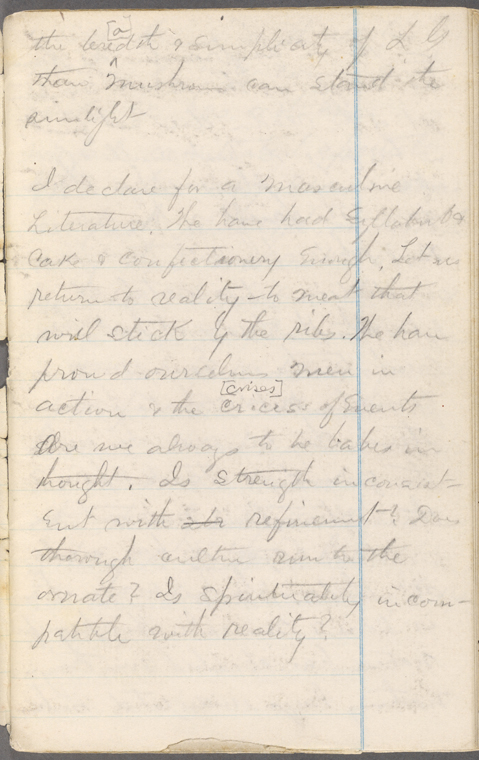 the bredth & simplicity of L G
[a]
than ^ mushroom can stand the
sunlight
I declare for a masculine
Literature. We have had
cake & confectionery Enough. Let us
return to reality – to meat that
will stick to the ribs. We have
proved ourselves men in
[crises]
action & the cricese of Events
Are we always to be babes in
thought. Is Strength inconsist-
Ent with refinement? Does
thorough culture run to the
ornate? Is Spirituality incom-
patible with reality?